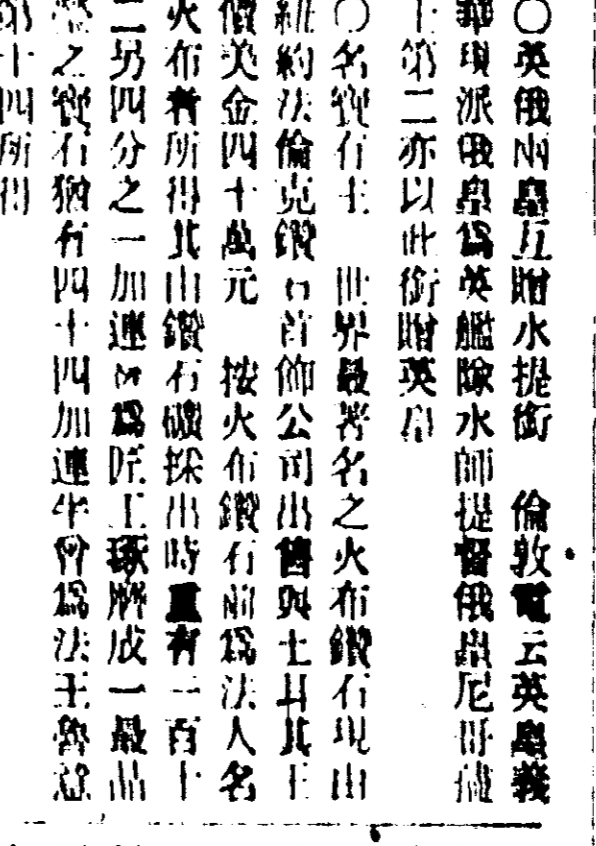 ○英俄兩皇互贈水提銜　倫敦電云英皇義
華現派俄皇爲英艦隊水師提督俄皇尼哥薩
士第二亦以此銜贈英皇
○名鑽石主　世界最著名之火布鑽石現由
紐約法倫克鑽石首飾公司出售與土耳其王
價美金四十萬元　按火布鑽石前爲法人名
火布者所得其由鑽石礦採出時重有一百十
二另四分之一加連嗣爲匠工琢解成一最品
瑩之寶石猶有四十四加連半曾爲法王魯意
第十四所得